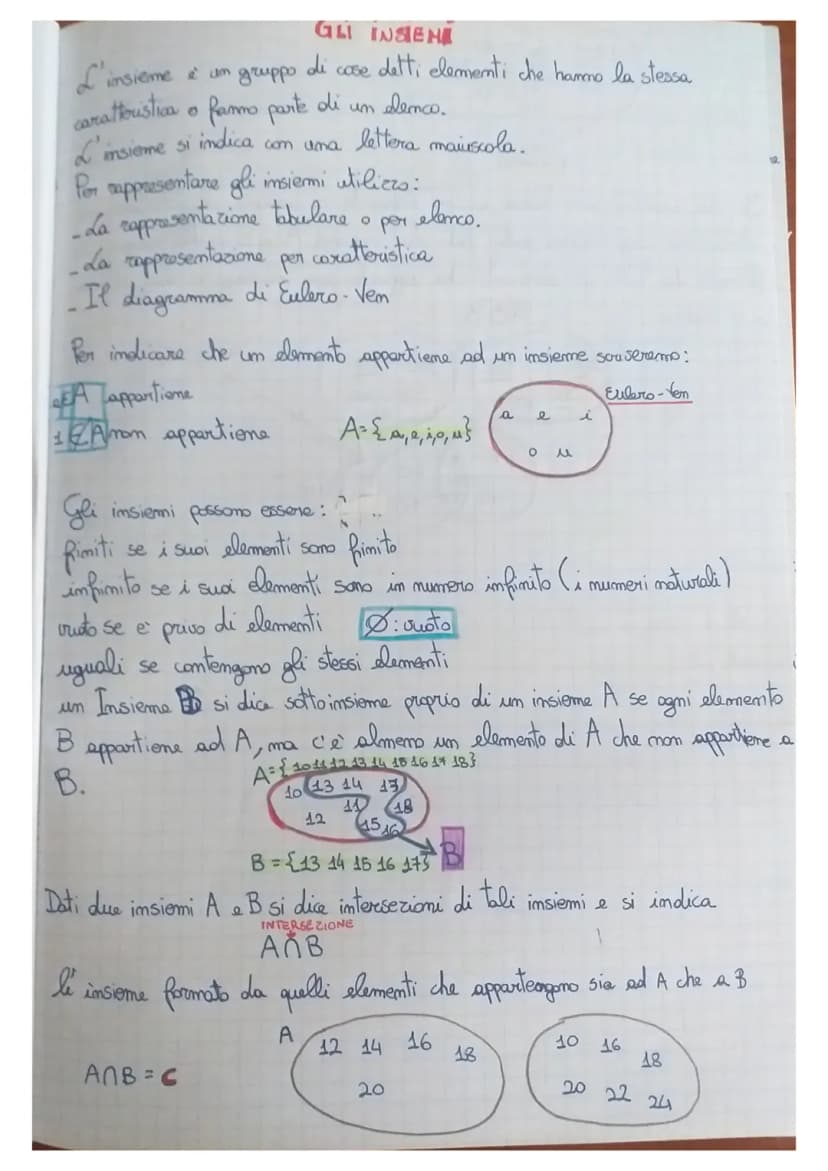 GLI INSIEMI
L'insieme è un gruppo di cose detti elementi che hanno la stessa
caratteristica o fanno parte di un elenco.
L'insieme si indica con una lettera maiuscola.
Per rappresentare gli insiemi utilizzo:
-La rappresentazione tabulare o per elenco.
-La rappresentazione per caratteristica
-Il diagramma di Eulero-Ven
Per indicare che un elemento appartiene ad un insieme scriveremo:
a∈A appartiene
Eulero-Ven
1∉A non appartiene A={a,e,i,o,u}
a e i
o u
Gli insiemi possono essere:
finiti se i suoi elementi sono finito
infinito se i suoi elementi sono in numero infinito (i numeri naturali)
vuoto se e' privo di elementi Ø:vuoto
uguali se contengono gli stessi elementi
un Insieme B si dice sottoinsieme proprio di un insieme A se ogni elemento
B appartiene ad A, ma c'è almeno un elemento di A che non appartiene a
B.
A={10 11 12 13 14 15 16 17 18}
10 13 14 17
11 18
12 15 16
B
B={13 14 15 16 17}
Dati due insiemi A e B si dice intersezioni di tali insiemi e si indica
INTERSEZIONE
A∩B
l'insieme formato da quelli elementi che appartengono sia ad A che a B
A
12 14 16 18
20
10 16 18
20 22 24
A∩B=C